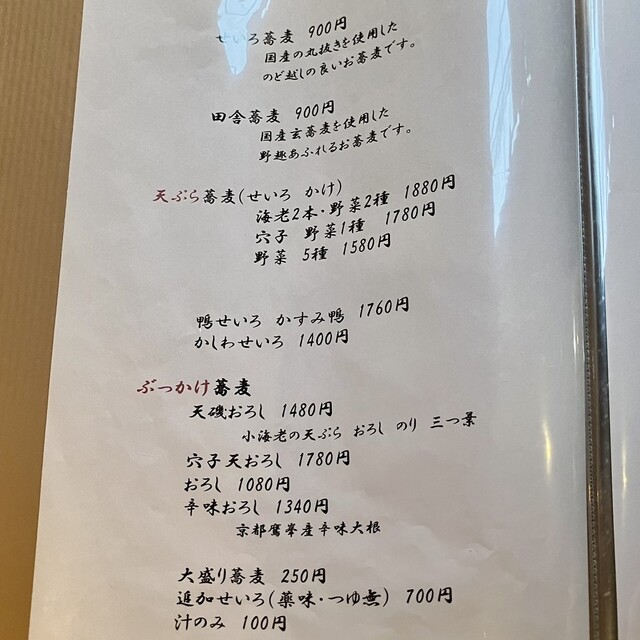 せいろ蕎麦 900円
国産の丸抜きを使用した
のど越しの良いお蕎麦です。
田舎蕎麦 900円
国産玄蕎麦を使用した
野趣あふれるお蕎麦です。
天ぷら蕎麦(せいろ かけ)
海老2本・野菜2種 1880円
穴子 野菜1種 1780円
野菜 5種 1580円
鴨せいろ かすみ鴨 1760円
かしわせいろ 1400円
ぶっかけ蕎麦
天磯おろし 1480円
小海老の天ぷら おろし のり 三つ葉
穴子天おろし 1780円
おろし 1080円
辛味おろし 1340円
京都鷹峯産辛味大根
大盛り蕎麦 250円
追加せいろ(薬味・つゆ無) 700円
汁のみ 100円